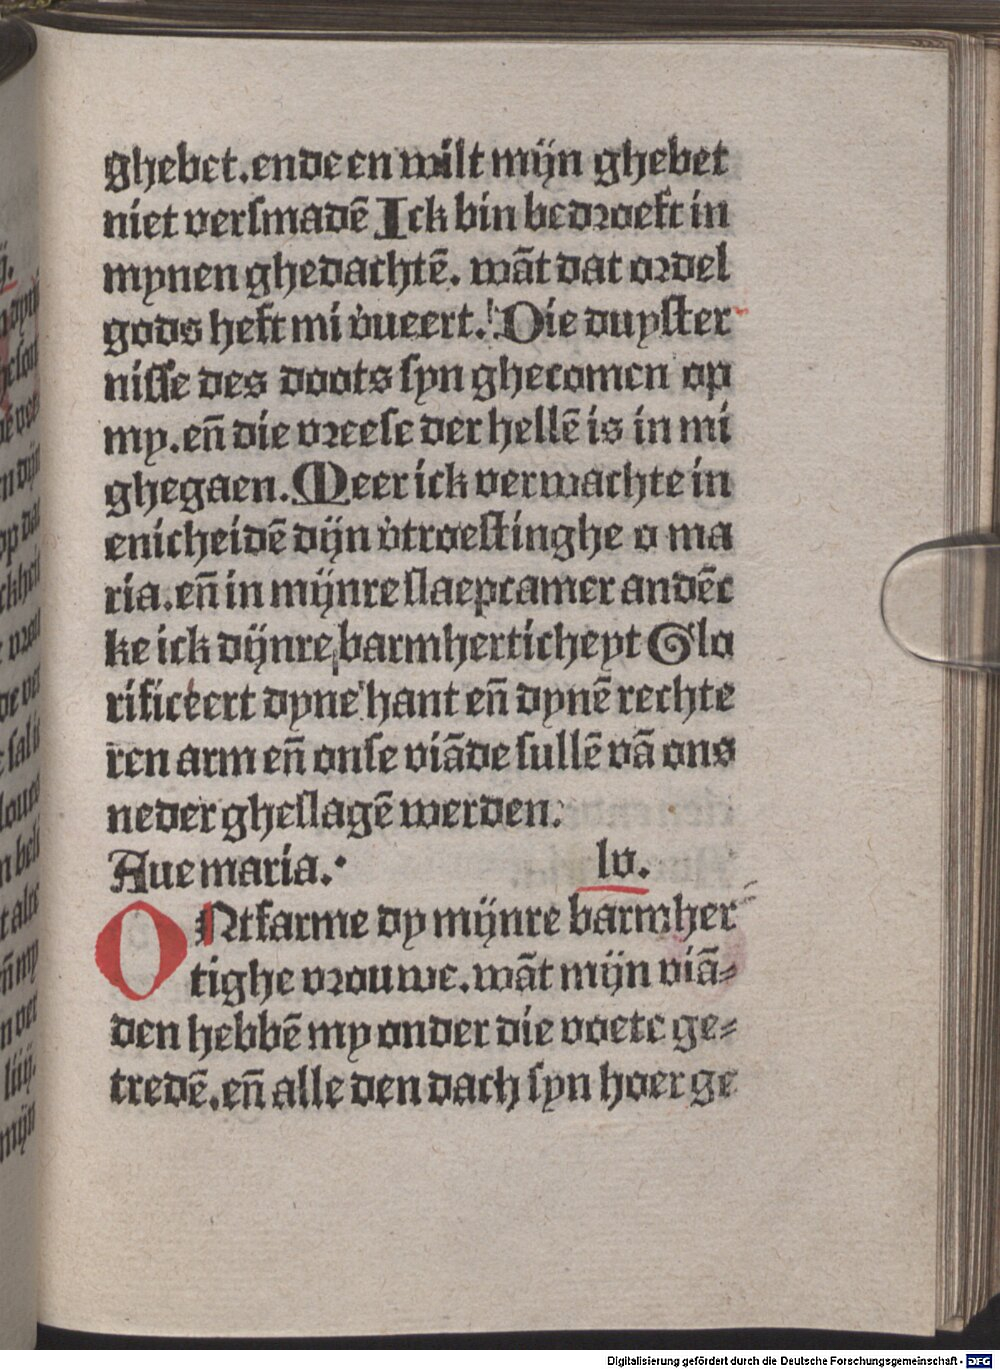 ghebet. ende en wilt mijn ghebet
niet versmadē Ick bin bedroeft in
mynen ghedachtē. wāt dat ordel
gods heft mi v̓ueert. Die duyster
nisse des doots syn ghecomen op
my. en̄ die vreese der hellē is in mi
ghegaen. Meer ick verwachte in
enicheidē dijn v̓troestinghe o ma
ria. en̄ in mijnre slaepcamer andēc
ke ick dijnre barmherticheyt Glo
rificeert dyne hant en̄ dynē rechte
ren arm en̄ onse viāde sullē vā ons
neder gheslagē werden.
Aue maria. lv.
ONtfarme dy mijnre barmher
tighe vrouwe. wāt mijn viā⸗
den hebbē my onder die voete ge⸗
tredē. en̄ alle den dach syn hoer ge
Digitalisierung gefördert durch die Deutsche Forschungsgemeinschaft - DFG